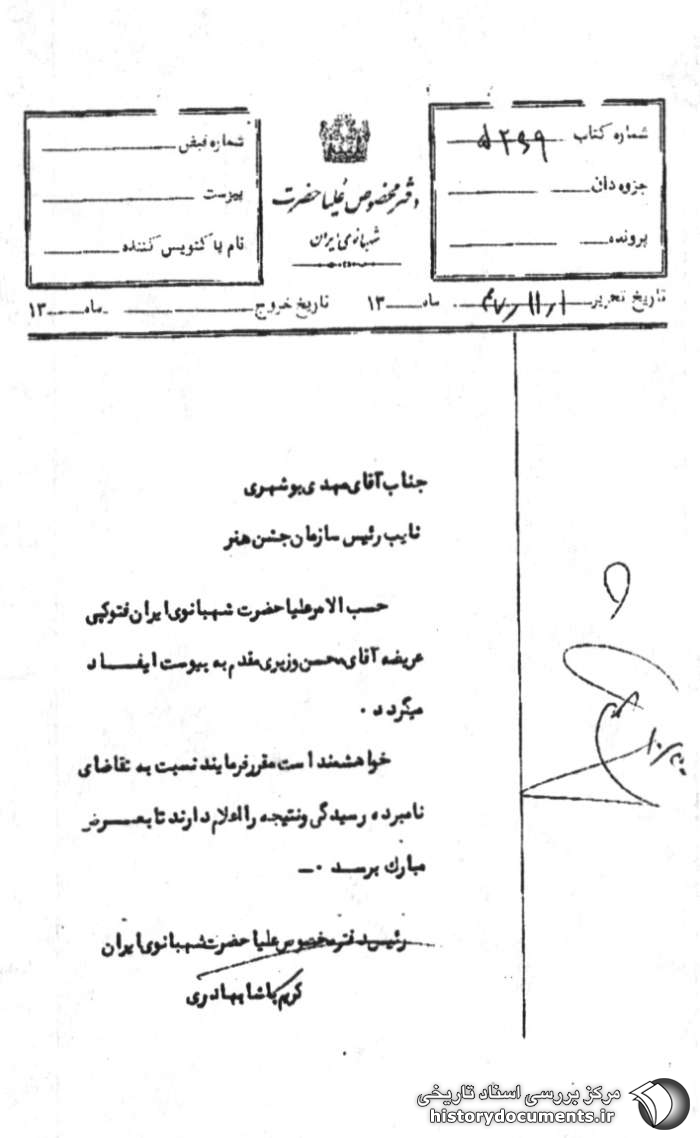 شماره کتاب ۵۲۶۹
جزوه دان
پرونده
دفتر مخصوص علیاحضرت
شهبانوی ایران
شماره قبض
پیوست
نام پاکنویس کننده
تاریخ تحریر ۴۷٫۱۱٫۱ ماه ۱۳ تاریخ خروج ماه ۱۳
جناب آقای مهدی بوشهری
نایب رئیس سازمان جشن هنر
حسب الامر علیاحضرت شهبانوی ایران فتوکپی
عریضه آقای محسن وزیری مقدم به پیوست ایفاد
میگردد ۰
خواهشمند است مقرر فرمایند نسبت به تقاضای
نامبرده رسیدگی ونتیجه را اعلام دارند تا بعرض
مبارک برسد ۰ـ
رئیس دفتر مخصوص علیاحضرت شهبانوی ایران
کریم پاشا بهادری
مرکز بررسی اسناد تاریخی
historydocuments.ir